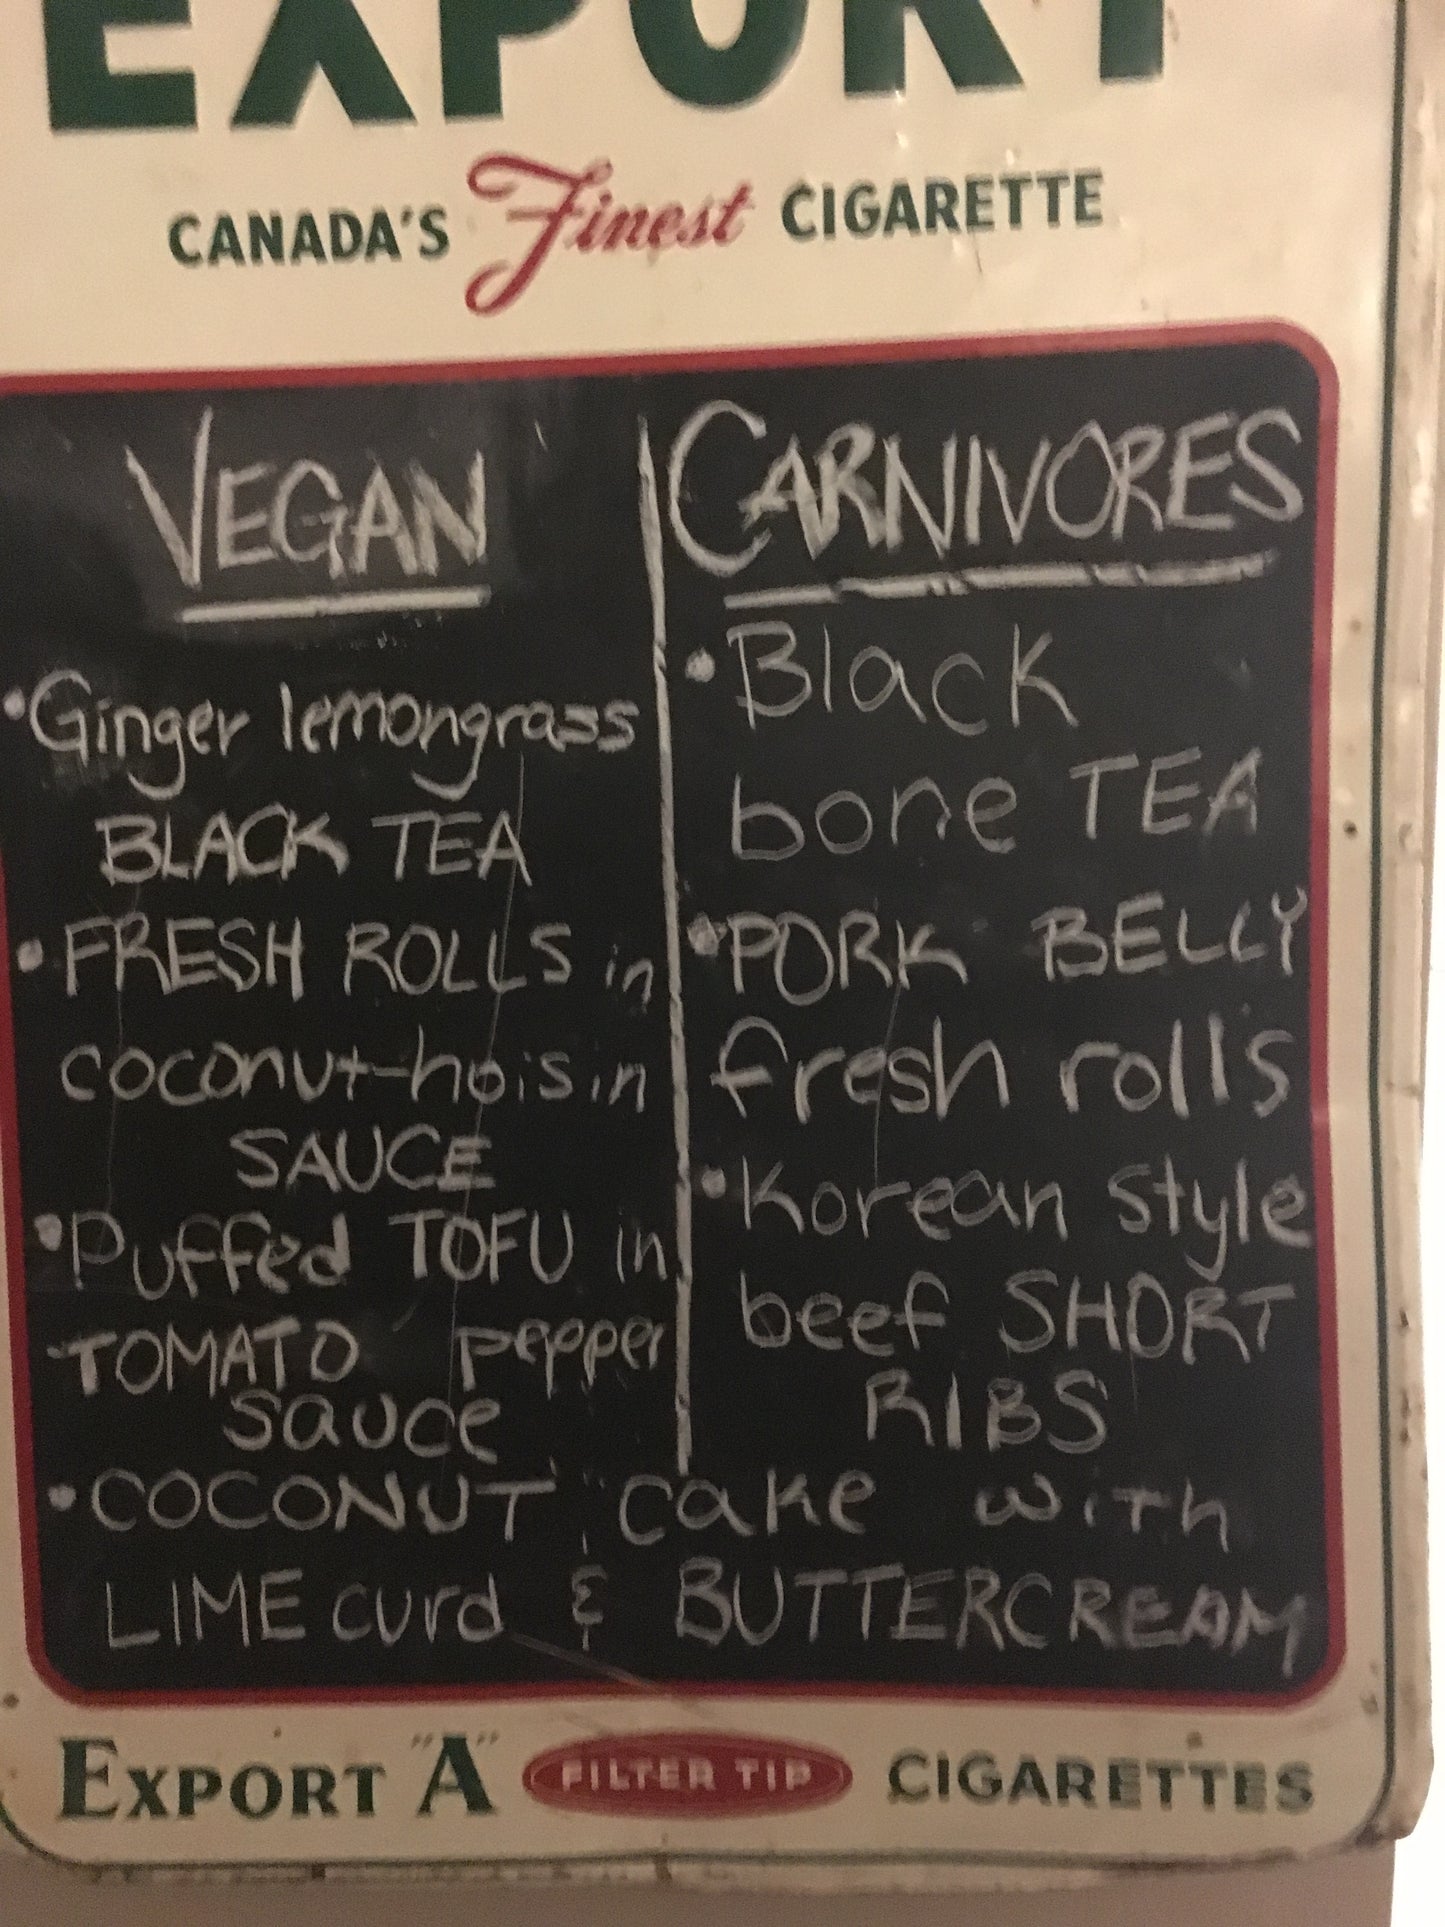 EXPORT
CANADA'S Finest CIGARETTE
VEGAN
• Ginger lemongrass
BLACK TEA
• FRESH ROLLS in
coconut-hoisin
SAUCE
• Puffed TOFU in
TOMATO pepper
sauce
CARNIVORES
• Black
bone TEA
• PORK BELLY
fresh rolls
• Korean style
beef SHORT
RIBS
• COCONUT cake with
LIME curd & BUTTERCREAM
EXPORT "A" FILTER TIP CIGARETTES